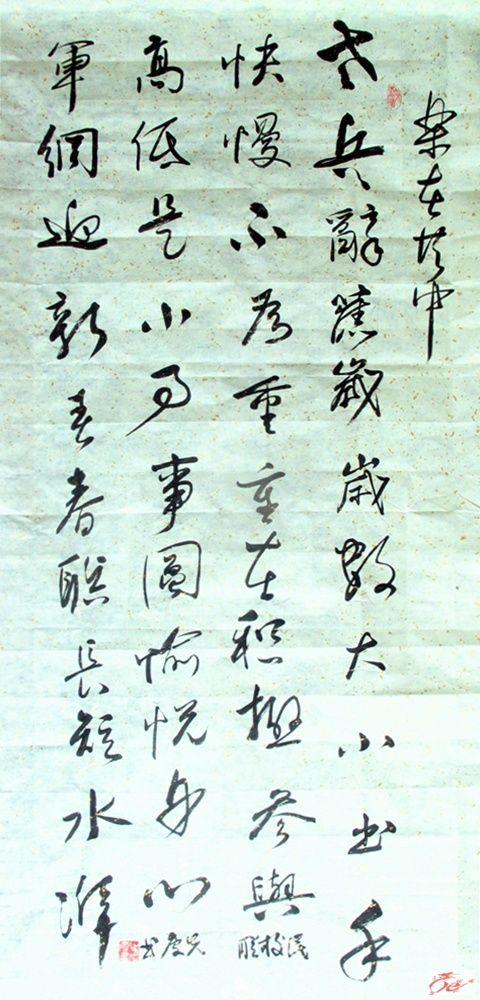 樂在其中
老兵辭舊歲歲數大小出手
快慢不為重重在積極參與
高低是小事事圓愉悅身心
軍網迎新春春联長短水準